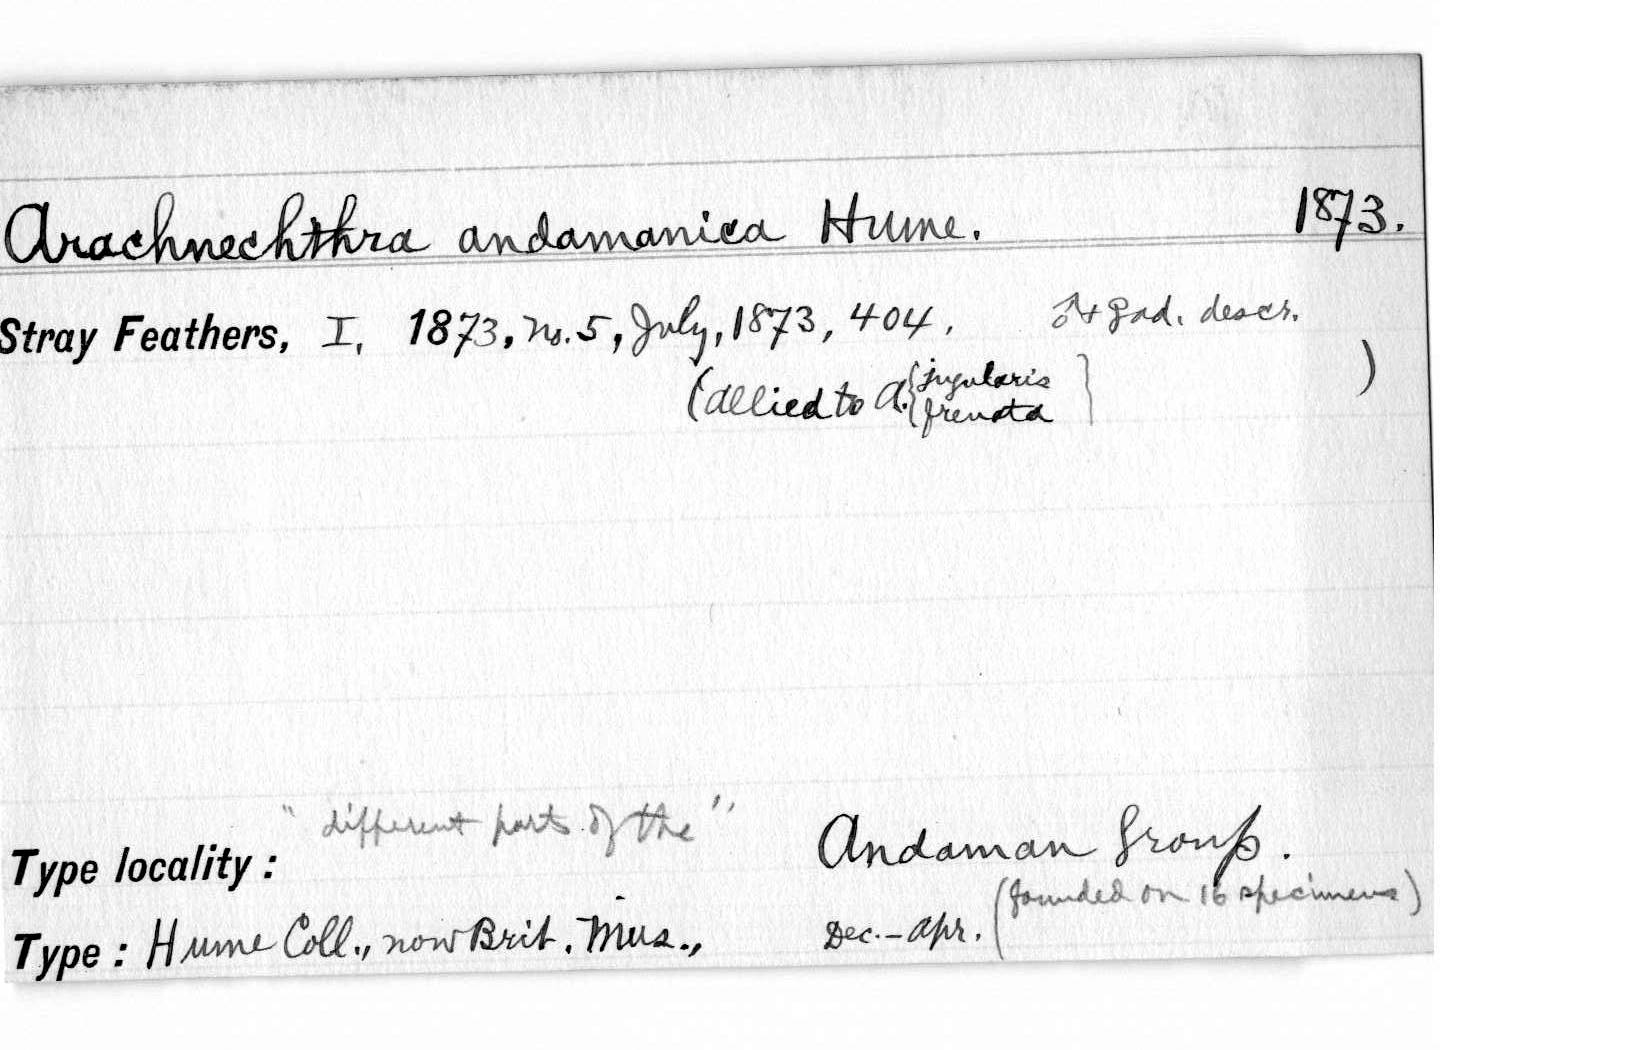 Arachnechthra andamanica Hume. 1873.
Stray Feathers, I, 1873, no. 5, July, 1873, 404, ♂ + ♀ ad. descr.
(allied to A. { jugularis frenata } )
"different parts of the"
Type locality: Andaman Group.
(founded on 16 specimens)
Type: Hume Coll., now Brit. Mus., Dec.-Apr.